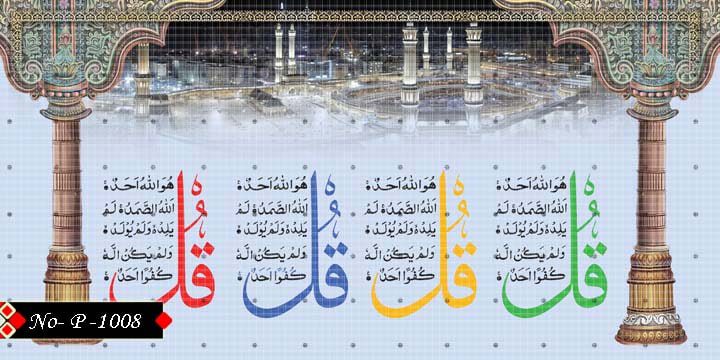 قُلْ
هُوَ اللّٰهُ اَحَدٌ ۚ
اَللّٰهُ الصَّمَدُ ۚ لَمْ
يَلِدْ ۙ وَلَمْ يُوْلَدْ ۙ
وَلَمْ يَكُنْ لَّهٗ
كُفُوًا اَحَدٌ
قُلْ
هُوَ اللّٰهُ اَحَدٌ ۚ
اَللّٰهُ الصَّمَدُ ۚ لَمْ
يَلِدْ ۙ وَلَمْ يُوْلَدْ ۙ
وَلَمْ يَكُنْ لَّهٗ
كُفُوًا اَحَدٌ
قُلْ
هُوَ اللّٰهُ اَحَدٌ ۚ
اَللّٰهُ الصَّمَدُ ۚ لَمْ
يَلِدْ ۙ وَلَمْ يُوْلَدْ ۙ
وَلَمْ يَكُنْ لَّهٗ
كُفُوًا اَحَدٌ
قُلْ
هُوَ اللّٰهُ اَحَدٌ ۚ
اَللّٰهُ الصَّمَدُ ۚ لَمْ
يَلِدْ ۙ وَلَمْ يُوْلَدْ ۙ
وَلَمْ يَكُنْ لَّهٗ
كُفُوًا اَحَدٌ
No- P -1008